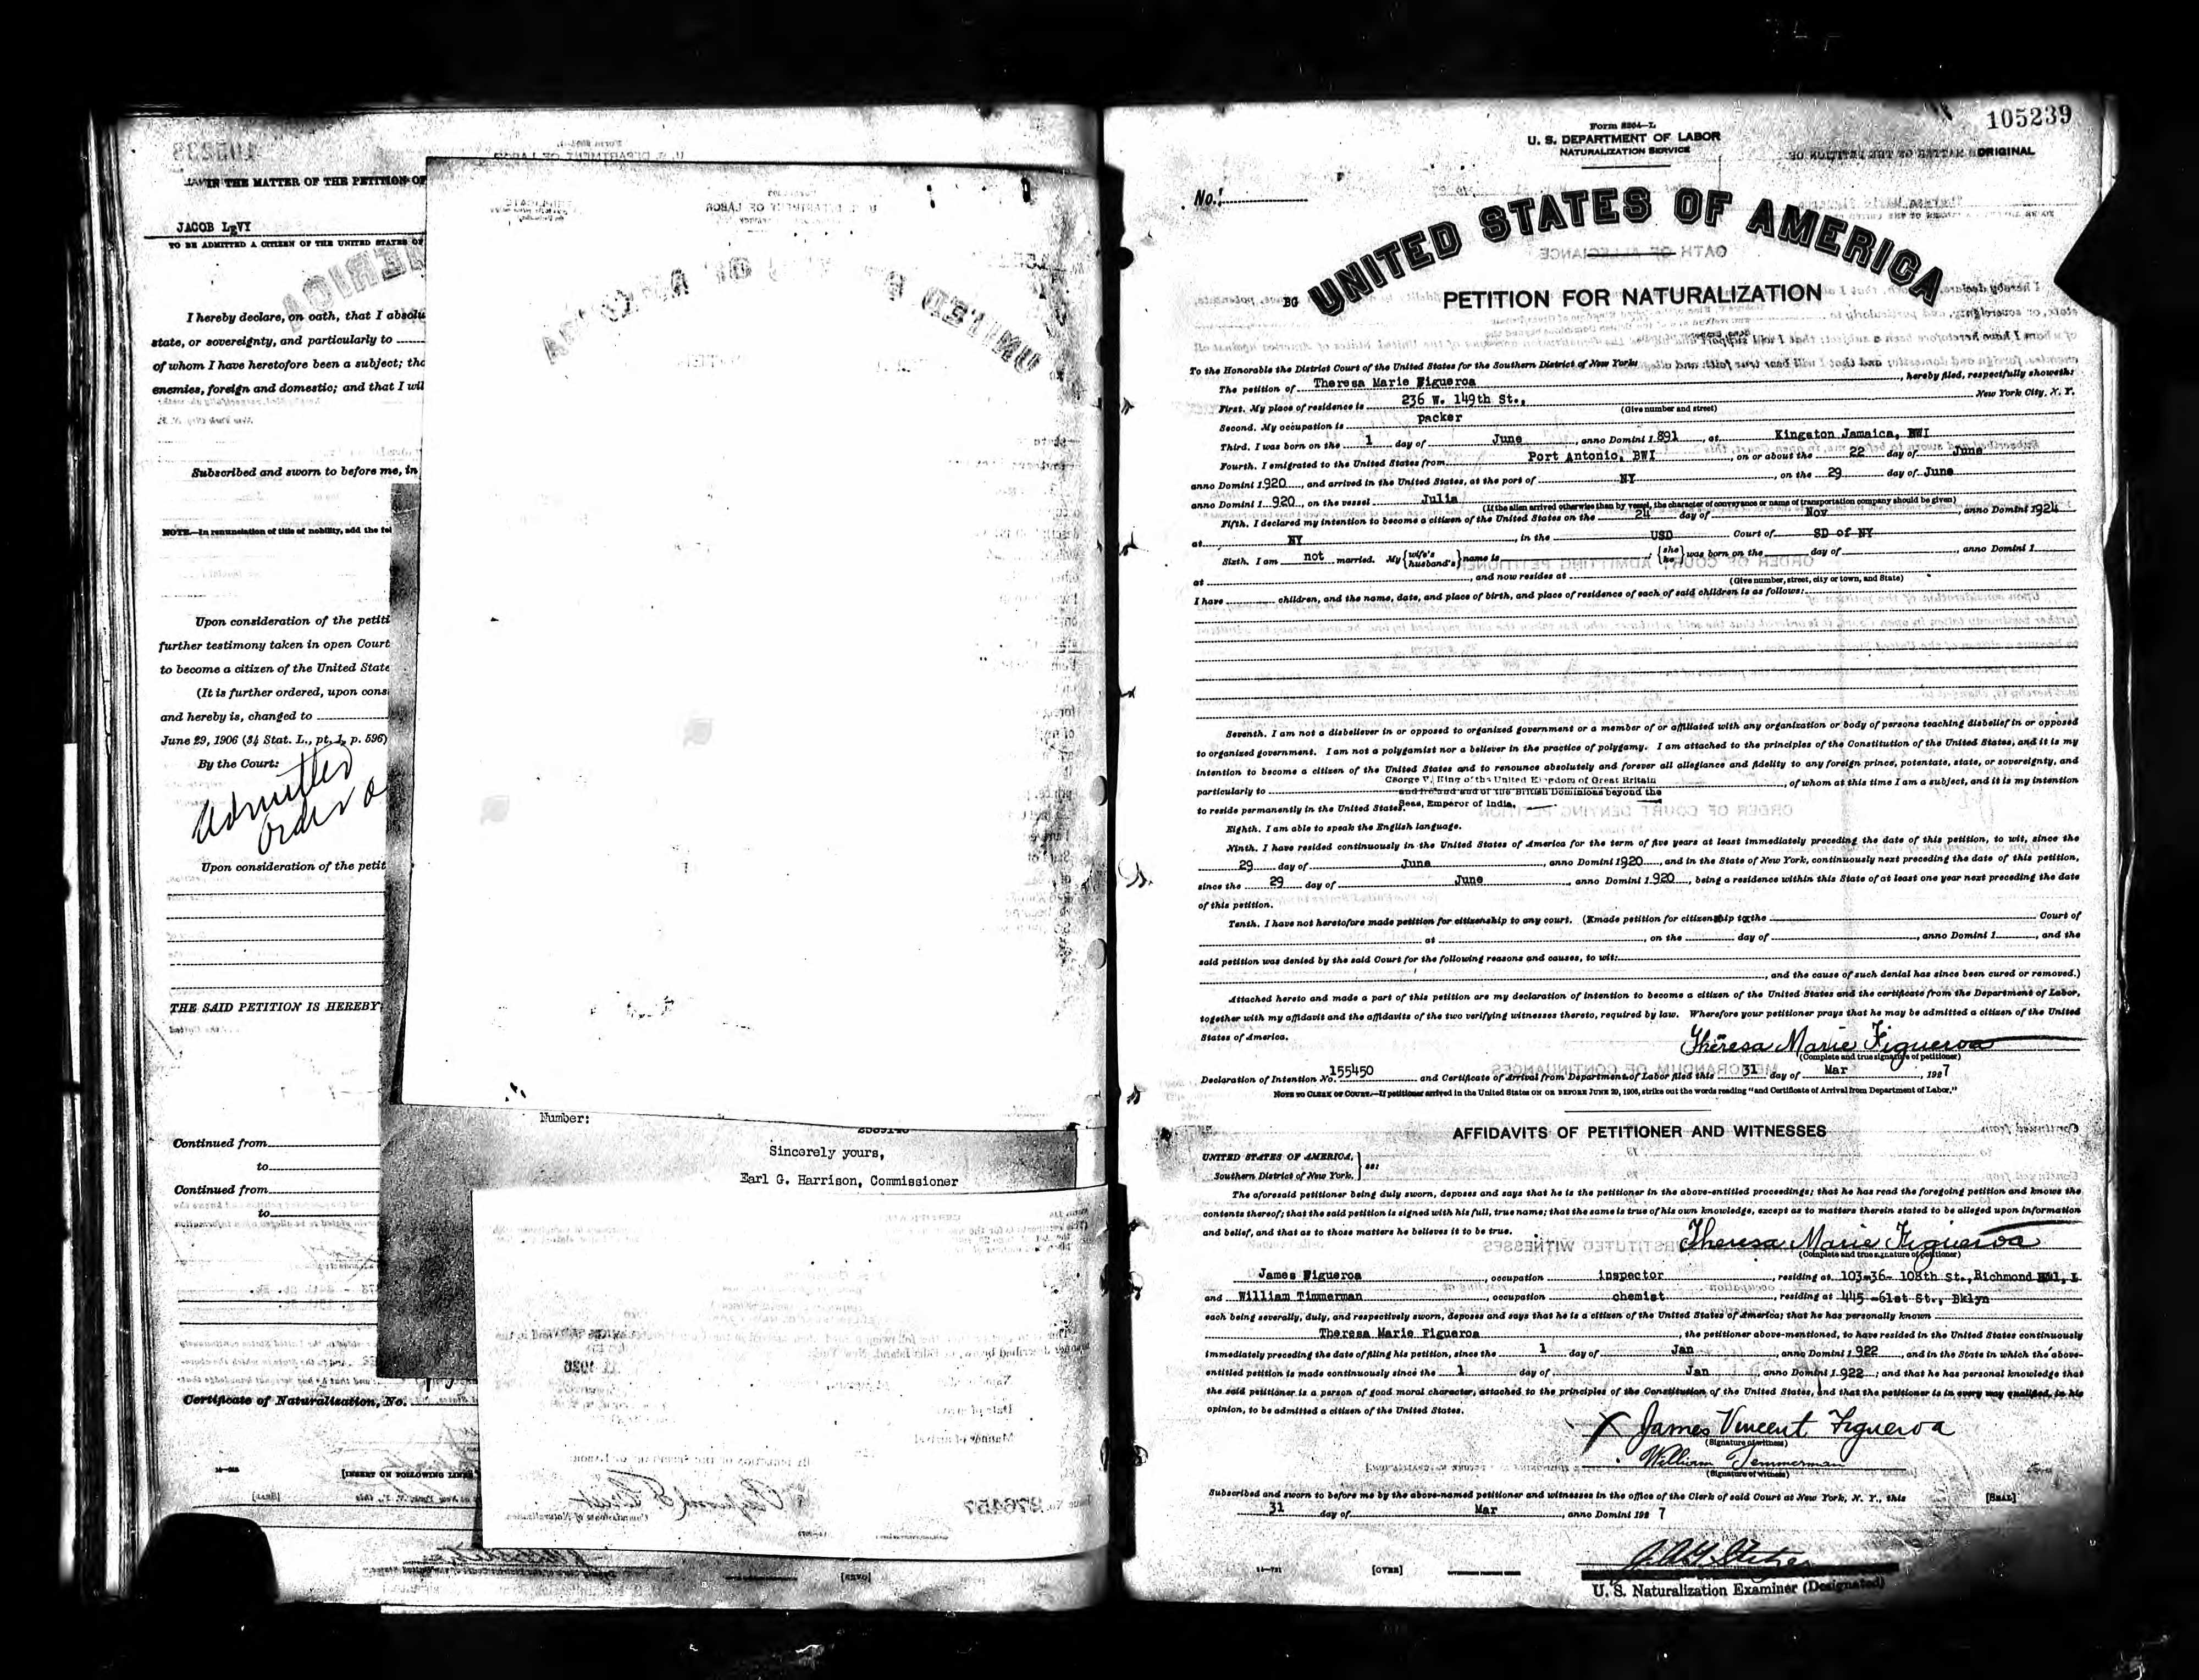 IN THE MATTER OF THE PETITION OF
JACOB LEVY
TO BE ADMITTED A CITIZEN OF THE UNITED STATES OF
I hereby declare, on oath, that I absolu
state, or sovereignty, and particularly to
of whom I have heretofore been a subject; tha
enemies, foreign and domestic; and that I wil
Subscribed and sworn to before me, in
NOTE.—In renunciation of title of nobility, add the fol
Upon consideration of the petiti
further testimony taken in open Court
to become a citizen of the United State
(It is further ordered, upon cons
and hereby is, changed to
June 29, 1906 (34 Stat. L., pt. 1, p. 596)
By the Court:
Admitted
order
Upon consideration of the petit
THE SAID PETITION IS HEREBY
Continued from
to
Continued from
to
Certificate of Naturalization, No.
[INSERT ON FOLLOWING LINES
Number:
Sincerely yours,
Earl G. Harrison, Commissioner
105239
Form 2204—L
U. S. DEPARTMENT OF LABOR
NATURALIZATION SERVICE
ORIGINAL
No.
UNITED STATES OF AMERICA
BG PETITION FOR NATURALIZATION
To the Honorable the District Court of the United States for the Southern District of New York:
The petition of Theresa Marie Figueroa, hereby filed, respectfully showeth:
First. My place of residence is 236 W. 149th St., New York City, N. Y.
(Give number and street)
Second. My occupation is packer
Third. I was born on the 1 day of June, anno Domini 1891, at Kingston Jamaica, BWI
Fourth. I emigrated to the United States from Port Antonio, BWI, on or about the 22 day of June
anno Domini 1920, and arrived in the United States, at the port of NY, on the 29 day of June
anno Domini 1920, on the vessel Julia
(If the alien arrived otherwise than by vessel, the character of conveyance or name of transportation company should be given)
Fifth. I declared my intention to become a citizen of the United States on the 24 day of Nov, anno Domini 1924
at NY, in the USD Court of SD of NY
Sixth. I am not married. My {wife's husband's} name is ; {she he} was born on the day of , anno Domini 1
at , and now resides at
(Give number, street, city or town, and State)
I have children, and the name, date, and place of birth, and place of residence of each of said children is as follows:
Seventh. I am not a disbeliever in or opposed to organized government or a member of or affiliated with any organization or body of persons teaching disbelief in or opposed
to organized government. I am not a polygamist nor a believer in the practice of polygamy. I am attached to the principles of the Constitution of the United States, and it is my
intention to become a citizen of the United States and to renounce absolutely and forever all allegiance and fidelity to any foreign prince, potentate, state, or sovereignty, and
George V, King of the United Kingdom of Great Britain
particularly to and Ireland and of the British Dominions beyond the, of whom at this time I am a subject, and it is my intention
to reside permanently in the United States. Seas, Emperor of India.
Eighth. I am able to speak the English language.
Ninth. I have resided continuously in the United States of America for the term of five years at least immediately preceding the date of this petition, to wit, since the
29 day of June, anno Domini 1920, and in the State of New York, continuously next preceding the date of this petition,
since the 29 day of June, anno Domini 1920, being a residence within this State of at least one year next preceding the date
of this petition.
Tenth. I have not heretofore made petition for citizenship to any court. (I made petition for citizenship to the Court of
at , on the day of , anno Domini 1 , and the
said petition was denied by the said Court for the following reasons and causes, to wit:
, and the cause of such denial has since been cured or removed.)
Attached hereto and made a part of this petition are my declaration of intention to become a citizen of the United States and the certificate from the Department of Labor,
together with my affidavit and the affidavits of the two verifying witnesses thereto, required by law. Wherefore your petitioner prays that he may be admitted a citizen of the United
States of America.
Theresa Marie Figueroa
(Complete and true signature of petitioner)
Declaration of Intention No. 155450 and Certificate of Arrival from Department of Labor filed this 31 day of Mar, 1927
NOTE TO CLERK OF COURT.—If petitioner arrived in the United States ON OR BEFORE JUNE 29, 1906, strike out the words reading "and Certificate of Arrival from Department of Labor."
AFFIDAVITS OF PETITIONER AND WITNESSES
UNITED STATES OF AMERICA,
Southern District of New York. } ss:
The aforesaid petitioner being duly sworn, deposes and says that he is the petitioner in the above-entitled proceedings; that he has read the foregoing petition and knows the
contents thereof; that the said petition is signed with his full, true name; that the same is true of his own knowledge, except as to matters therein stated to be alleged upon information
and belief, and that as to those matters he believes it to be true.
Theresa Marie Figueroa
(Complete and true signature of petitioner)
James Figueroa, occupation inspector, residing at 103-36- 108th St., Richmond Hill, L
and William Timmerman, occupation chemist, residing at 445 -61st St., Bklyn
each being severally, duly, and respectively sworn, deposes and says that he is a citizen of the United States of America; that he has personally known
Theresa Marie Figueroa, the petitioner above-mentioned, to have resided in the United States continuously
immediately preceding the date of filing his petition, since the 1 day of Jan, anno Domini 1922, and in the State in which the above-
entitled petition is made continuously since the 1 day of Jan, anno Domini 1922; and that he has personal knowledge that
the said petitioner is a person of good moral character, attached to the principles of the Constitution of the United States, and that the petitioner is in every way qualified, in his
opinion, to be admitted a citizen of the United States.
X James Vincent Figueroa
(Signature of witness)
William Timmerman
(Signature of witness)
Subscribed and sworn to before me by the above-named petitioner and witnesses in the office of the Clerk of said Court at New York, N. Y., this
31 day of Mar, anno Domini 1927
[SEAL]
[OVER]
U. S. Naturalization Examiner (Designated)